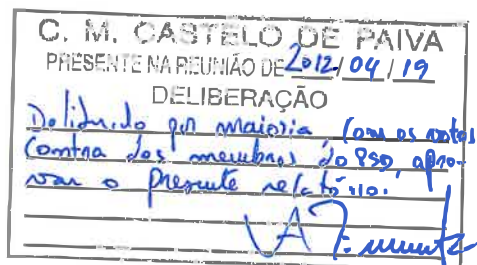 C. M. CASTELO DE PAIVA
PRESENTE NA REUNIÃO DE 2012/04/19
DELIBERAÇÃO
Deliberado por maioria, com os votos
contra dos membros do PSD, apro-
var o presente relatório.